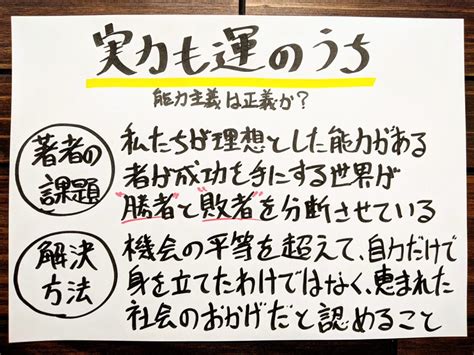 実力も運のうち
能力主義は正義か?
著者の
課題
私たちが理想とした能力がある
者は成功を手にする世界が
"勝者"と"敗者"を分断させている
解決
方法
機会の平等を超えて、自力だけで
身を立てたわけではなく、恵まれた
社会のおかげだと認めること